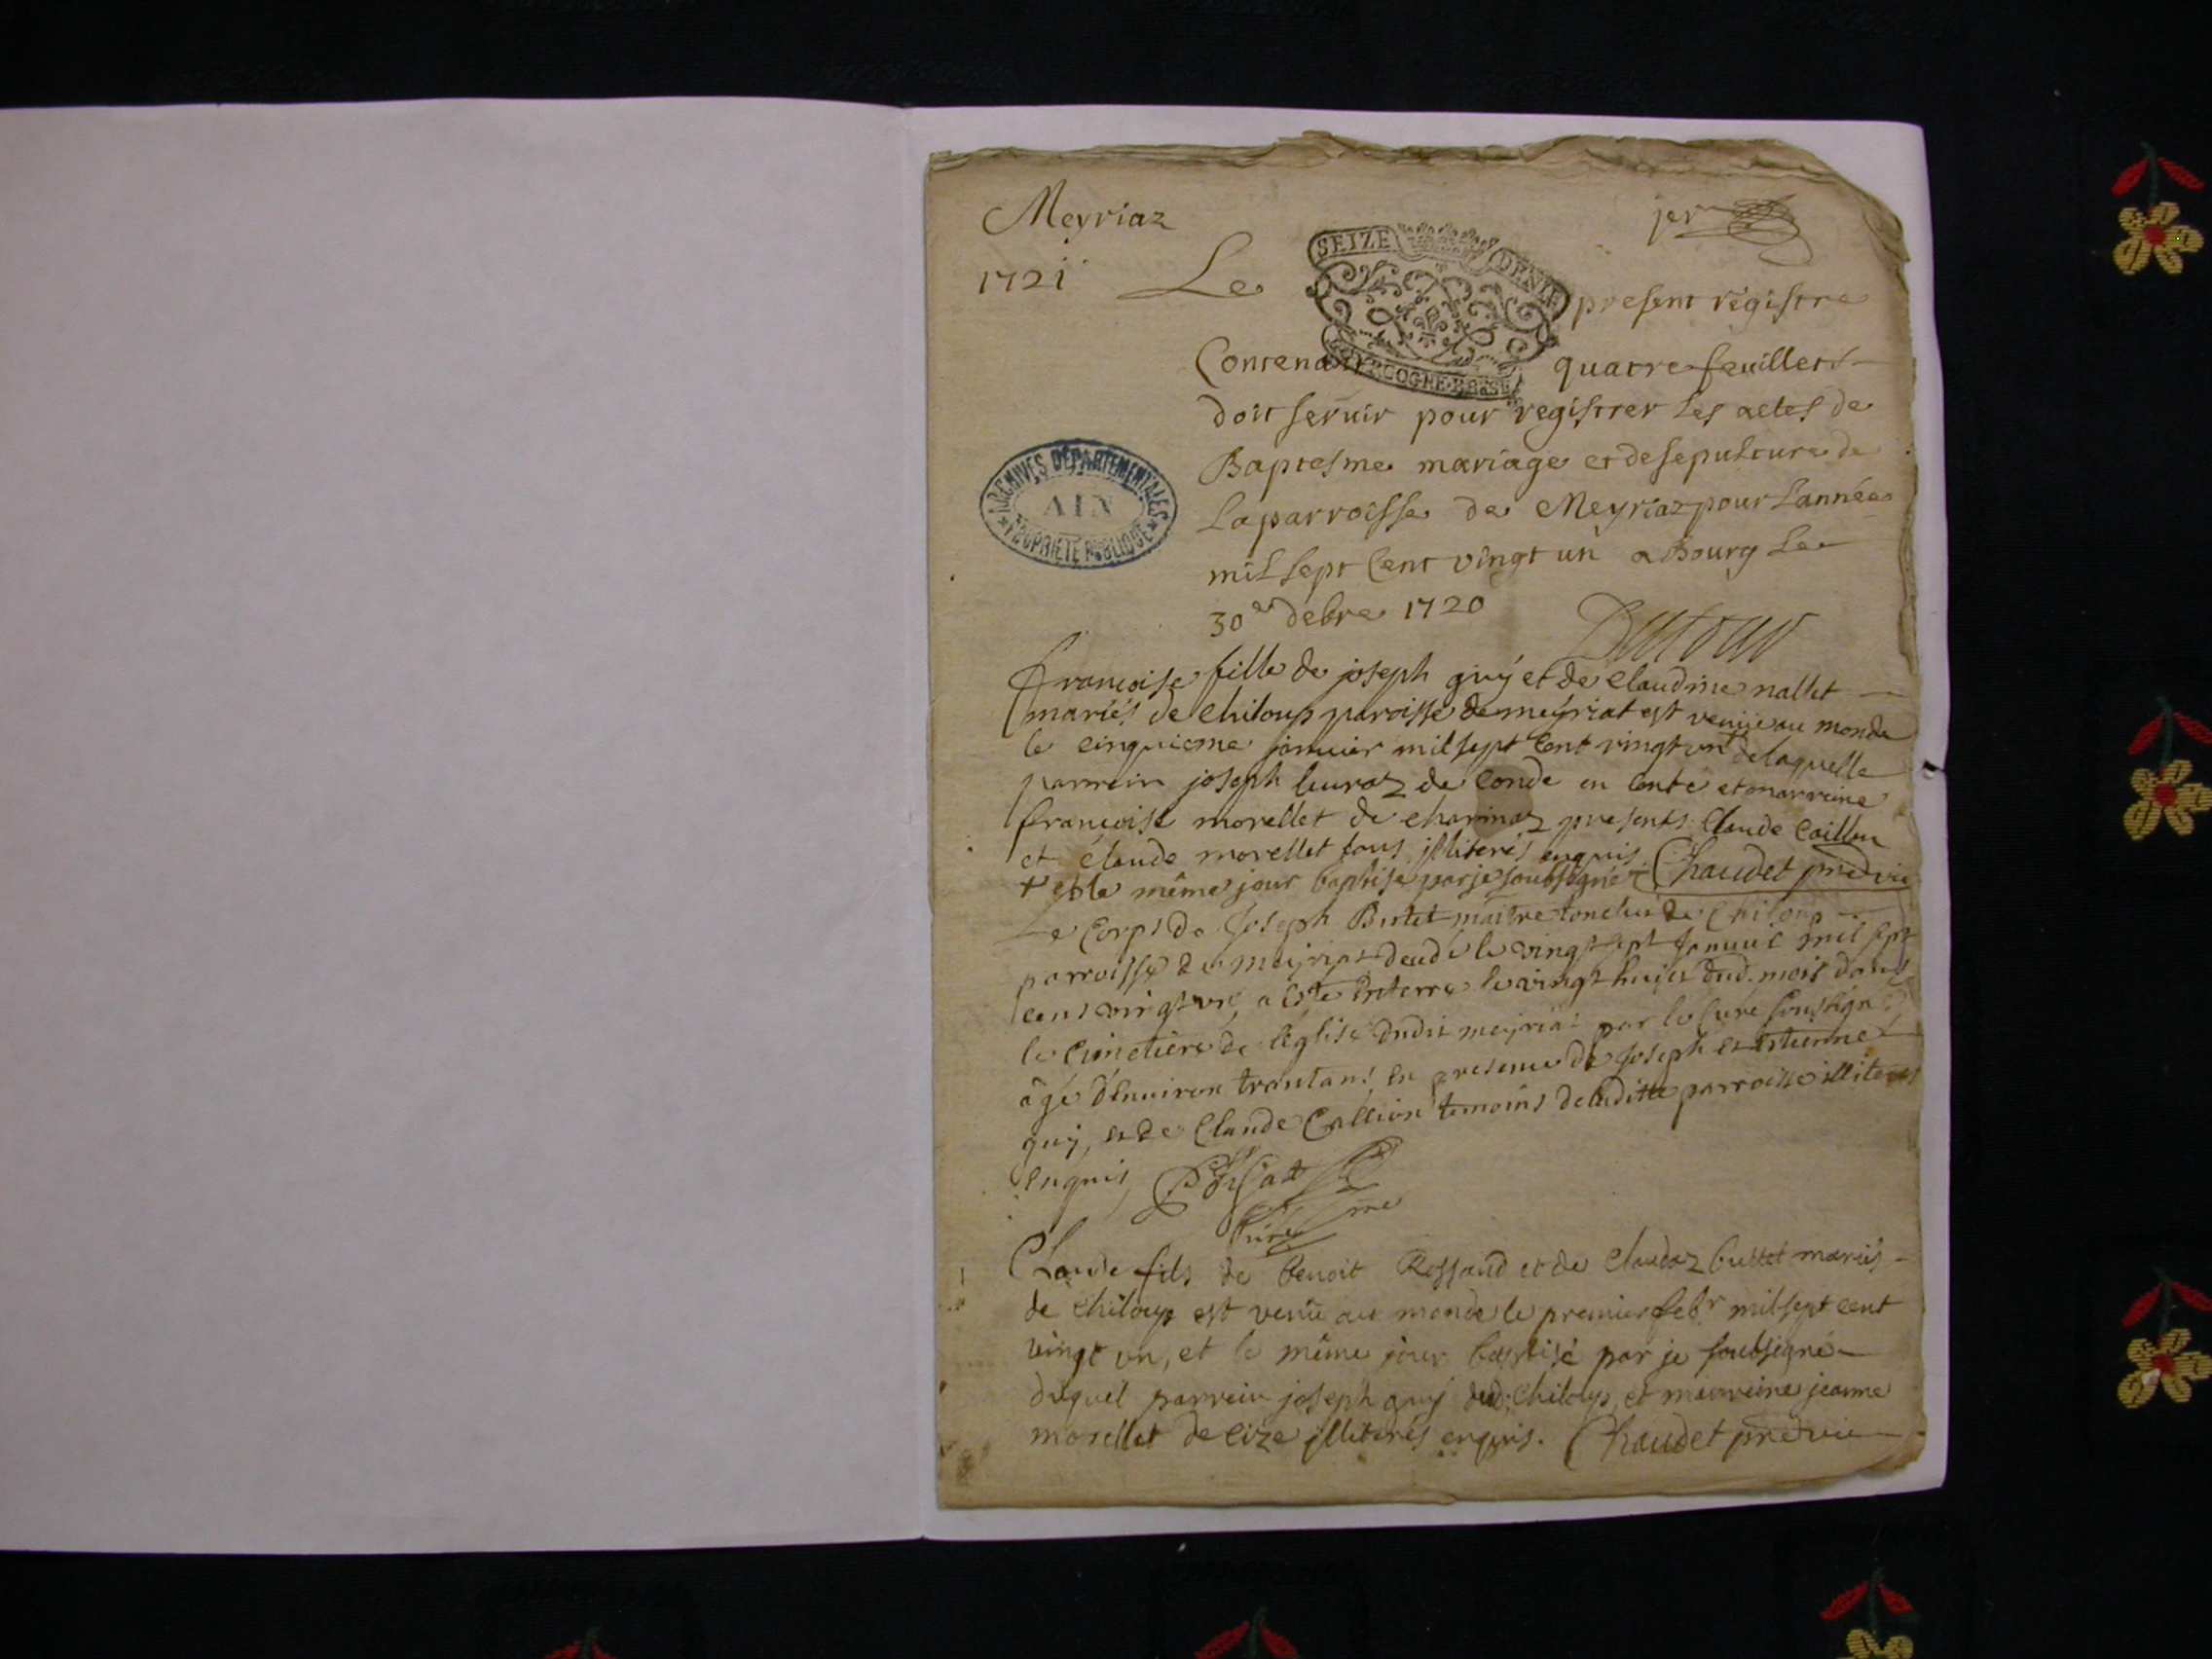 Meyriaz
jer
1721
SEIZE DENIE
Le present registre
BOURGOGNE BRESSE
Contenant quatre feuillets
doit seruir pour registrer Les actes de
Baptesme mariage et de sepulture de
La parroisse de Meyriaz pour L'année
mil sept Cent vingt un a Bourg Le
30e debre 1720
ARCHIVES DÉPARTEMENTALES
AIN
PROPRIÉTÉ PUBLIQUE
françoise fille de joseph guÿ et de claudine nallet
mariés de chiloup paroisse de meÿriat est venüe au monde
le cinquieme januier mil sept cent vingt un de laquelle
parrein joseph leuraz de conde en conté et marreine
françoise morellet de charinaz presents Claude Caillon
et claude morellet tous jlliterés enquis. Chaudet
+ et le même jour baptisé par je soubsigné +
Le Corps de Joseph Butet maitre de Chiloup
parroisse de meÿriat le vingt sept Januier mil sept
cens vingt un, a esté Enterré le vingt huict dud. mois dans
le cimetiere de l'église dudit meÿriat par le Curé soussigné
âgé d'Enuiron trentans, en presence de Joseph et Estienne
guÿ, et de Claude Callion temoins de laditte parroisse illiteres
enquis
Curé
Claude fils de benoit Rossand et de claudaz buttet mariés
de chiloup est venû au monde le premier febr mil sept cent
vingt un, et le même jour baptisé par je soubsigné
duquel parrein joseph guÿ dud. Chiloup, et marreine jeanne
morellet de cize jlliterés enquis. Chaudet